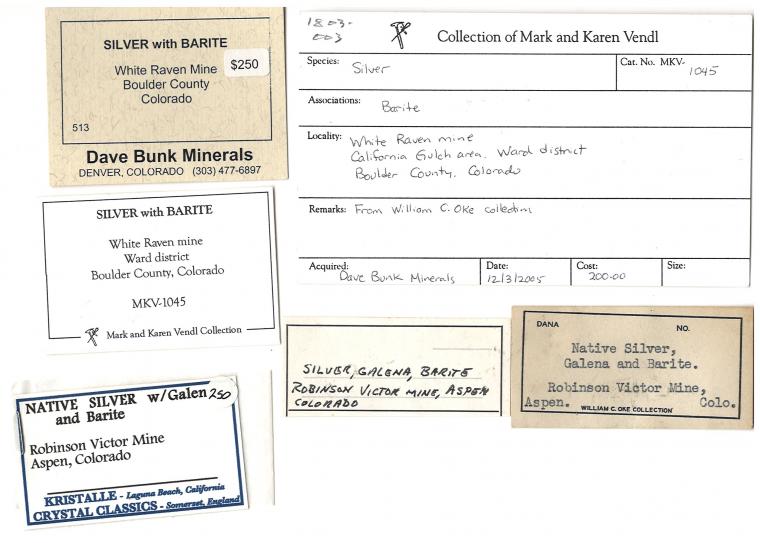 SILVER with BARITE
White Raven Mine
$250
Boulder County
Colorado
513
Dave Bunk Minerals
DENVER, COLORADO (303) 477-6897
1803-
003
Collection of Mark and Karen Vendl
Species: Silver
Cat. No. MKV-
1045
Associations: Barite
Locality: White Raven mine
California Gulch area, Ward district
Boulder County, Colorado
Remarks: From William C. Oke collection
Acquired: Dave Bunk Minerals
Date: 12/3/2005
Cost: 200.00
Size:
SILVER with BARITE
White Raven mine
Ward district
Boulder County, Colorado
MKV-1045
Mark and Karen Vendl Collection
SILVER, GALENA, BARITE
ROBINSON VICTOR MINE, ASPEN
COLORADO
DANA
NO.
Native Silver,
Galena and Barite.
Robinson Victor Mine,
Aspen. Colo.
WILLIAM C. OKE COLLECTION
NATIVE SILVER w/Galen 250
and Barite
Robinson Victor Mine
Aspen, Colorado
KRISTALLE - Laguna Beach, California
CRYSTAL CLASSICS - Somerset, England